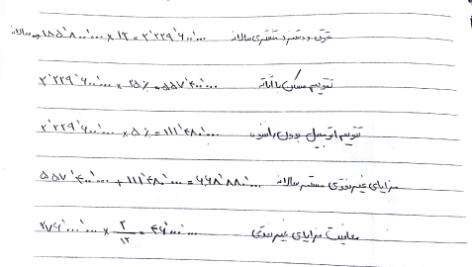 حقوق و دستمزد مستمری سالانه ۱۸۵٬۸۰۰٬۰۰۰ × ۱۲ = ۲٬۲۲۹٬۶۰۰٬۰۰۰ سالانه
تقویم مسکن با اثاثه ۲٬۲۲۹٬۶۰۰٬۰۰۰ × ۲۵٪ = ۵۵۷٬۴۰۰٬۰۰۰
تقویم اتومبیل بدون راننده ۲٬۲۲۹٬۶۰۰٬۰۰۰ × ۵٪ = ۱۱۱٬۴۸۰٬۰۰۰
مزایای غیر نقدی مستمر سالانه ۵۵۷٬۴۰۰٬۰۰۰ + ۱۱۱٬۴۸۰٬۰۰۰ = ۶۶۸٬۸۸۰٬۰۰۰
معافیت مزایای غیر نقدی × ۲/۱۲ = ۴۶٬۰۰۰٬۰۰۰